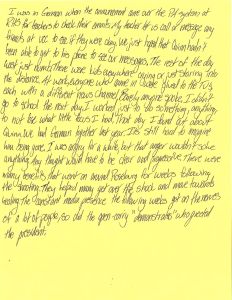 I was in German when the announcement came over the PA system at
RHS for teachers to check their emails. My teacher let us call or message any
friends at UCC to see if they were okay. We just hoped that Quinn hadn't
been able to get to his phone to see our messages. The rest of the day
went just numb. There were kids everywhere crying or just staring into
the distance. At work, everyone who came in was glued to the TVs,
each with a different news channel. Barely anyone spoke. I didn't
go to school the next day. I worked, just to do something, anything
to not lose what little focus I had. That day I found out about
Quinn. We had German together last year. It's still hard to imagine
him being gone. I was angry for a while, but that anger wouldn't solve
anything. Any thought would have to be clear and progressive. There were
many benefits that went on around Roseburg for weeks following
the shooting. They helped many get over the shock and move towards
healing. The constant media presence the following weeks got on the nerves
of a lot of people, so did the open-carry "demonstrators" who greeted
the president.